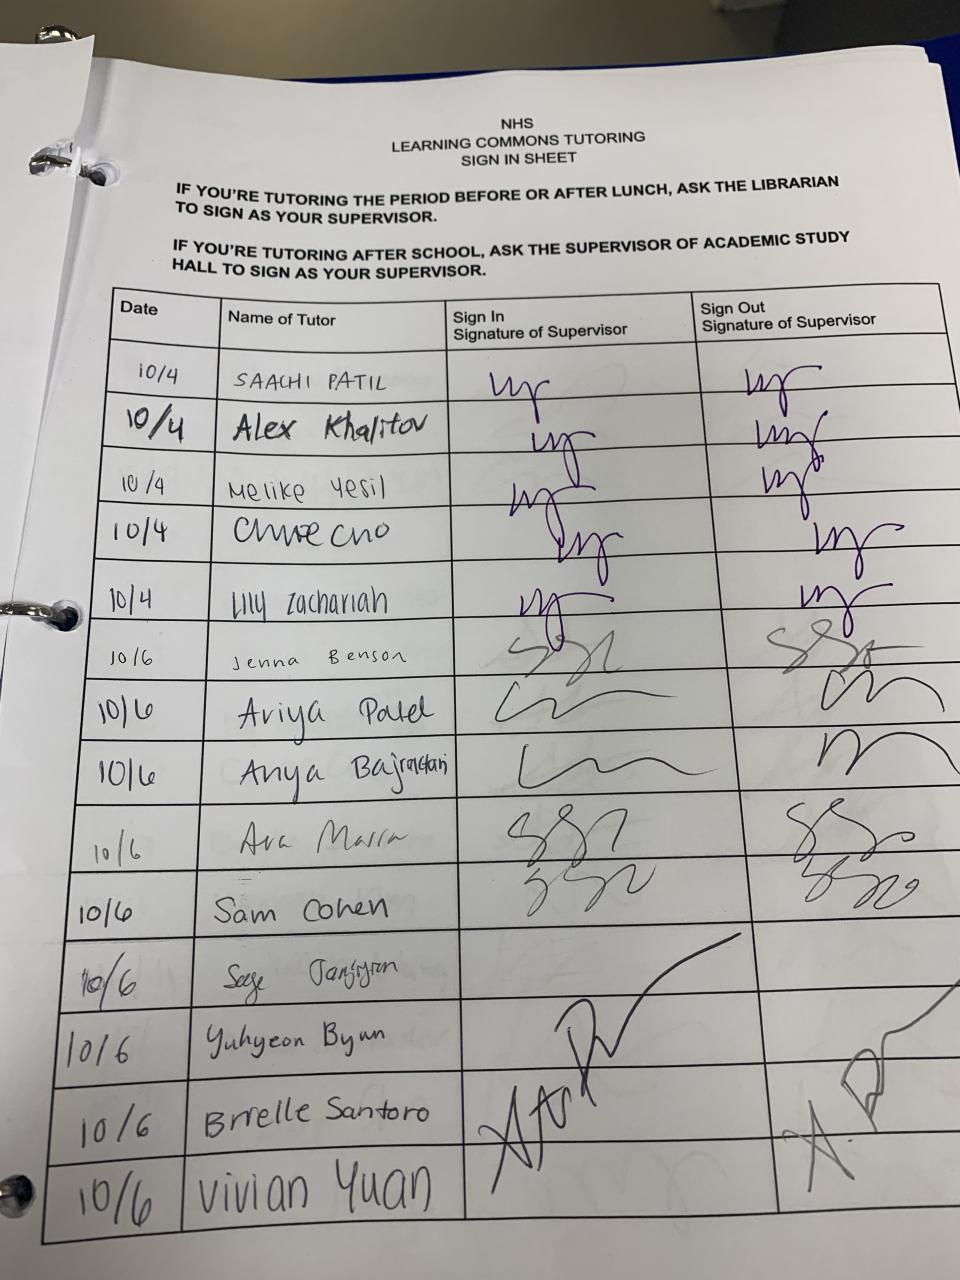 NHS
LEARNING COMMONS TUTORING
SIGN IN SHEET
IF YOU'RE TUTORING THE PERIOD BEFORE OR AFTER LUNCH, ASK THE LIBRARIAN
TO SIGN AS YOUR SUPERVISOR.
IF YOU'RE TUTORING AFTER SCHOOL, ASK THE SUPERVISOR OF ACADEMIC STUDY
HALL TO SIGN AS YOUR SUPERVISOR.
Date Name of Tutor Sign In Sign Out
Signature of Supervisor Signature of Supervisor
10/4 SAACHI PATIL
10/4 Alex Khalitov
10/4 Melike Yesil
10/4
10/4 Lilly Zachariah
10/6 Jenna Benson
10/6 Ariya Patel
10/6 Anya
10/6 Ava
10/6 Sam Cohen
10/6
10/6 Yuhyeon Byun
10/6 Brielle Santoro
10/6 Vivian Yuan